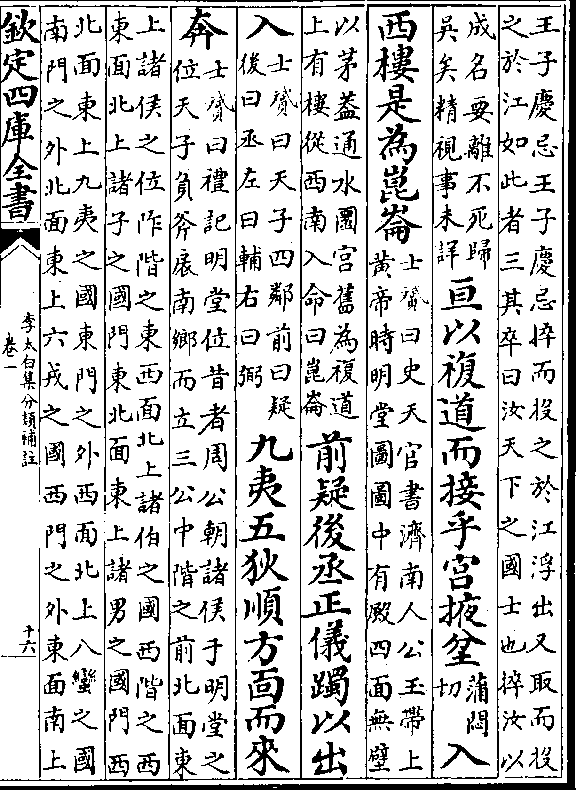 王子慶忌王子慶忌捽而投之於江浮出又取而投
之於江如此者三其卒曰汝天下之國士也捽汝以
成名要離不死歸
吳矣精視事未詳
亘以複道而接乎宮掖坌
蒲悶
切
入
西樓是為崑崙
士贇曰史天官書濟南人公玉帶上
黄帝時明堂圖圖中有殿四面無壁
以茅葢通水圜宫舊為複道
上有樓從西南入命曰崑崙
前疑後丞正儀躅以出
入
士贇曰天子四鄰前曰疑
後曰丞左曰輔右曰弼
九夷五狄順方面而來
奔
士贇曰禮記明堂位昔者周公朝諸侯于明堂之
位天子負斧扆南鄉而立三公中階之前北面東
上諸侯之位阼階之東西面北上諸伯之國西階之西
東面北上諸子之國門東北面東上諸男之國門西
北面東上九夷之國東門之外西面北上八蠻之國
南門之外北面東上六戎之國西門之外東面南上
欽定四庫全書
李太白集分類補註
卷一
十六